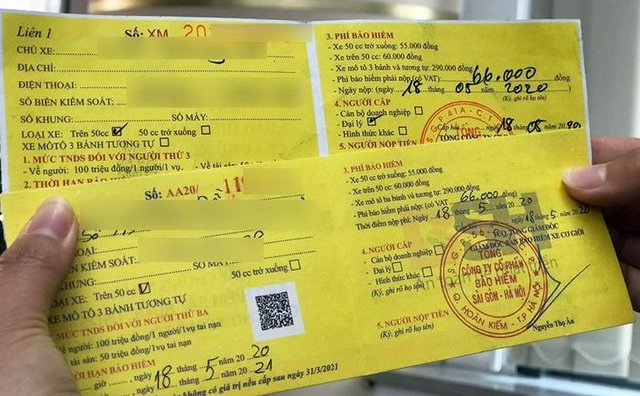 Liên 1
Số: XM 20
CHỦ XE:
ĐỊA CHỈ
ĐIỆN THOẠI:
SỐ BIÊN KIỂM SOÁT:
SỐ KHUNG: SỐ MÁY:
LOẠI XE: Trên 50cc 50 cc trở xuống
XE MÔ TÔ 3 BÁNH TƯƠNG TỰ
1. MỨC TNDS ĐỐI VỚI NGƯỜI THỨ 3
- Về người: 100 triệu đồng/1 người/1 vụ. - Về tài sản:
2. THỜI HẠN BẢO
3. PHÍ BẢO HIỂM
- Xe 50 cc trở xuống: 55.000 đồng
- Xe trên 50 cc: 60.000 đồng
- Xe mô tô 3 bánh và tương tự: 290.000 đồng
- Phí bảo hiểm phải nộp (có VAT) 66.000 đồng
- Ngày nộp: (ngày 18 tháng 08 năm 2020
(Ký, ghi rõ họ tên)
4. NGƯỜI CẤP
- Cán bộ doanh nghiệp
- Đại lý
- Hình thức khác
18 08 20 20
(Ký, ghi rõ họ tên)
5. NGƯỜI NỘP TIỀN
Số: AA20/ 119
SỐ
KIỂM SOÁT:
KHUNG: SỐ MÁY
LOẠI XE: Trên 50 cc 50 cc trở xuống
XE MÔ TÔ 3 BÁNH TƯƠNG TỰ
MỨC TNDS ĐỐI VỚI NGƯỜI THỨ BA
Về người: 100 triệu đồng/1 người/1vụ tai nạn
tài sản: 50 triệu đồng/1vụ tai nạn
HẠN BẢO HIỂM
giờ ngày 18 tháng 5 năm 20 20
ngày 18 tháng 5 năm 20 21
không có giá trị nếu cấp sau ngày 31/3/2021
3. PHÍ BẢO HIỂM
- Xe 50 cc trở xuống: 55.000 đồng
- Xe trên 50 cc: 60.000 đồng
- Xe mô tô ba bánh và tương tự: 290.000 đồng
- Phí bảo hiểm phải nộp (có VAT) 66.000 đồng
Thời điểm nộp phí: Ngày 18 tháng 5 năm 20 20
4. NGƯỜI CẤP
- Cán bộ doanh nghiệp
- Đại lý
- Hình thức khác
(Ký, ghi rõ họ tên)
18 tháng 5 năm 20 20
GIÁM ĐỐC BAN BẢO HIỂM XE CƠ GIỚI
TỔNG
CÔNG TY CỔ PHẦN
BẢO HIỂM
SÀI GÒN - HÀ NỘI
HOÀN KIẾM - TP HÀ NỘI
5. NGƯỜI NỘP TIỀN
(Ký, ghi rõ họ tên)